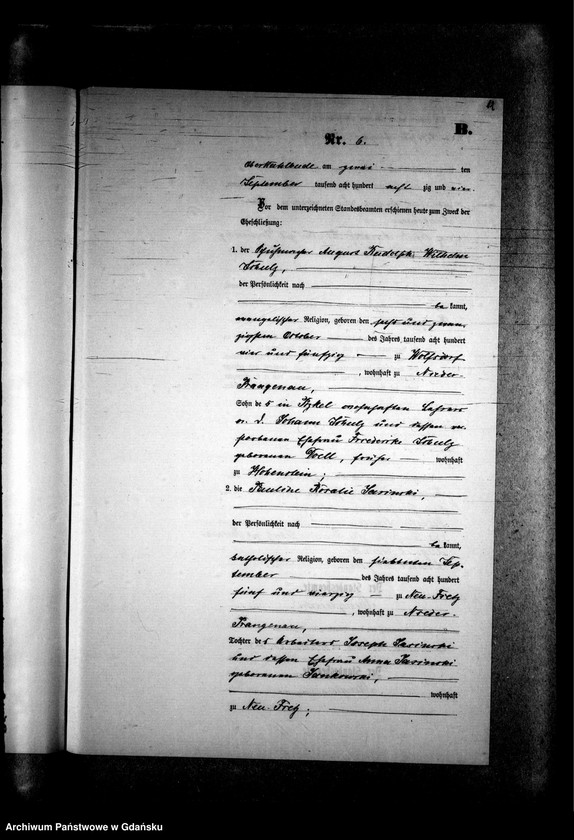 B.
Nr. 6.
Oberkahlbude am zwei ten
September tausend acht hundert acht zig und vier.
Vor dem unterzeichneten Standesbeamten erschienen heute zum Zweck der
Eheschließung:
1. der August Rudolph Wilhelm
Schulz,
der Persönlichkeit nach
be kannt,
evangelischer Religion, geboren den sechs und zwan-
zigsten October des Jahres tausend acht hundert
vier und fünfzig zu Wolfsdorf
, wohnhaft zu Nieder-
Prangenau,
Sohn des in Lehrers
Johann Schulz und dessen ver-
storbenen Ehefrau Friederike Schulz
geborenen früher wohnhaft
zu Hohenstein;
2. die Pauline Rosalie
der Persönlichkeit nach
be kannt,
katholischer Religion, geboren den siebenten Sep-
tember des Jahres tausend acht hundert
fünf und vierzig zu Neu-Fietz
, wohnhaft zu Nieder-
Prangenau,
Tochter des Arbeiters Joseph
und dessen Ehefrau Anna
geborenen Jankowski,
wohnhaft
zu Neu-Fietz;
Archiwum Państwowe w Gdańsku